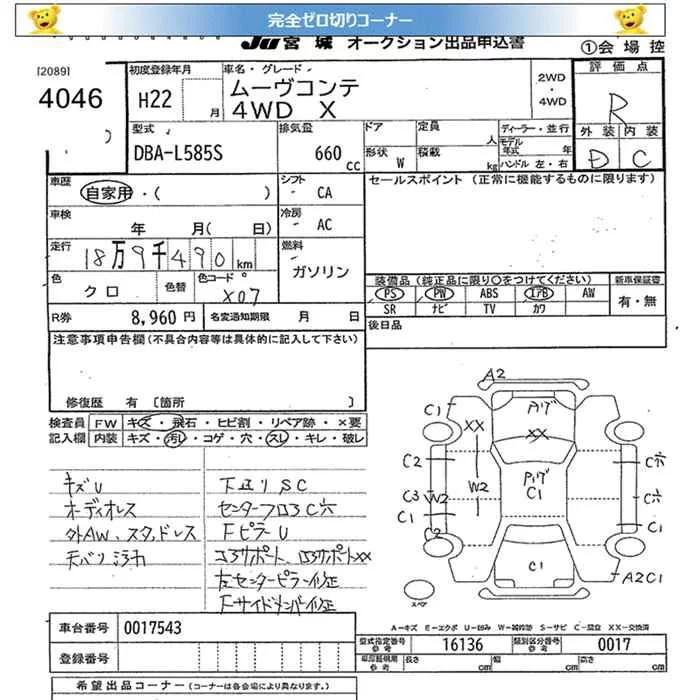 完全ゼロ切りコーナー
JU 宮城 オークション出品申込書
①会場控
[2089]
4046
初度登録年月
H22 月
車名・グレード
ムーヴコンテ
4WD X
2WD
・
4WD
評価点
R
外装 内装
D C
型式
DBA-L585S
排気量
660 cc
ドア
形状 W
定員 人
積載 kg
ディーラー・並行
モデル年式 年
ハンドル 左・右
車歴
自家用・( )
シフト
CA
セールスポイント (正常に機能するものに限ります)
車検
年 月( 日)
冷房
AC
走行
18万9千490km
燃料
ガソリン
色
クロ
色替
色コード
X07
装備品 (純正品に限り○をつけてください)
新車保証書
PS PW ABS エアB AW
有・無
SR ナビ TV カワ
R券
8,960円
名変通知期限 月 日
後日品
注意事項申告欄(不具合内容等は具体的に記入して下さい)
修復歴 有 [箇所 ]
検査員 FW キズ・飛石・ヒビ割・リペア跡・×要
記入欄 内装 キズ・汚レ・コゲ・穴・スレ・キレ・破レ
キズU
オーディオレス
外AW、スタッドレス
天バリ汚れ
下廻りSC
センターフロアC穴
FピラーU
コアサポート、ロアサポートXX
左センターピラー修正
Fサイドメンバー修正
A2
C1
アリゲ
XX
XX
C2
C3
W2
W2
C1
C2
アリゲ
C1
C穴
C穴
C1
C1
A2C1
スペア
A−キズ E−エクボ U−凹み W−補修跡 S−サビ C−腐食 XX−交換済
車台番号
0017543
登録番号
型式指定番号
参考
16136
類別区分番号
参考
0017
長さ cm
幅 cm
高さ cm
希望出品コーナー (コーナーは各会場により異なります。)